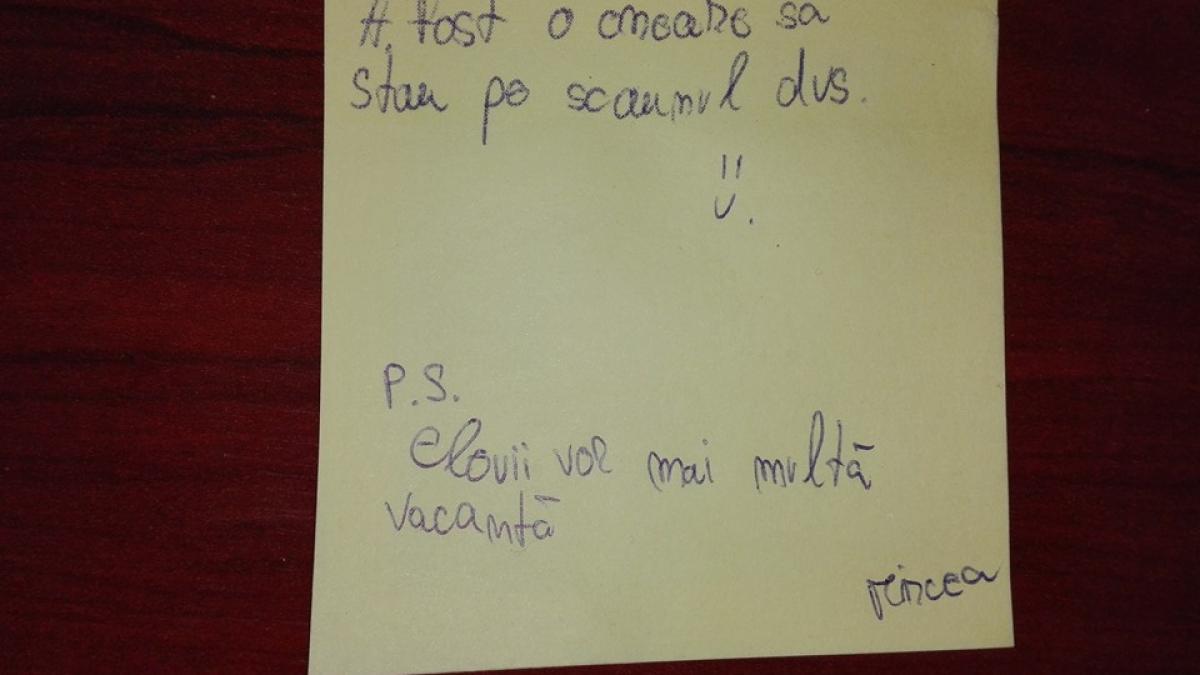 A fost o onoare sa
stau pe scaunul dvs.
P.S.
Elevii vor mai multă
vacantă
Mircea